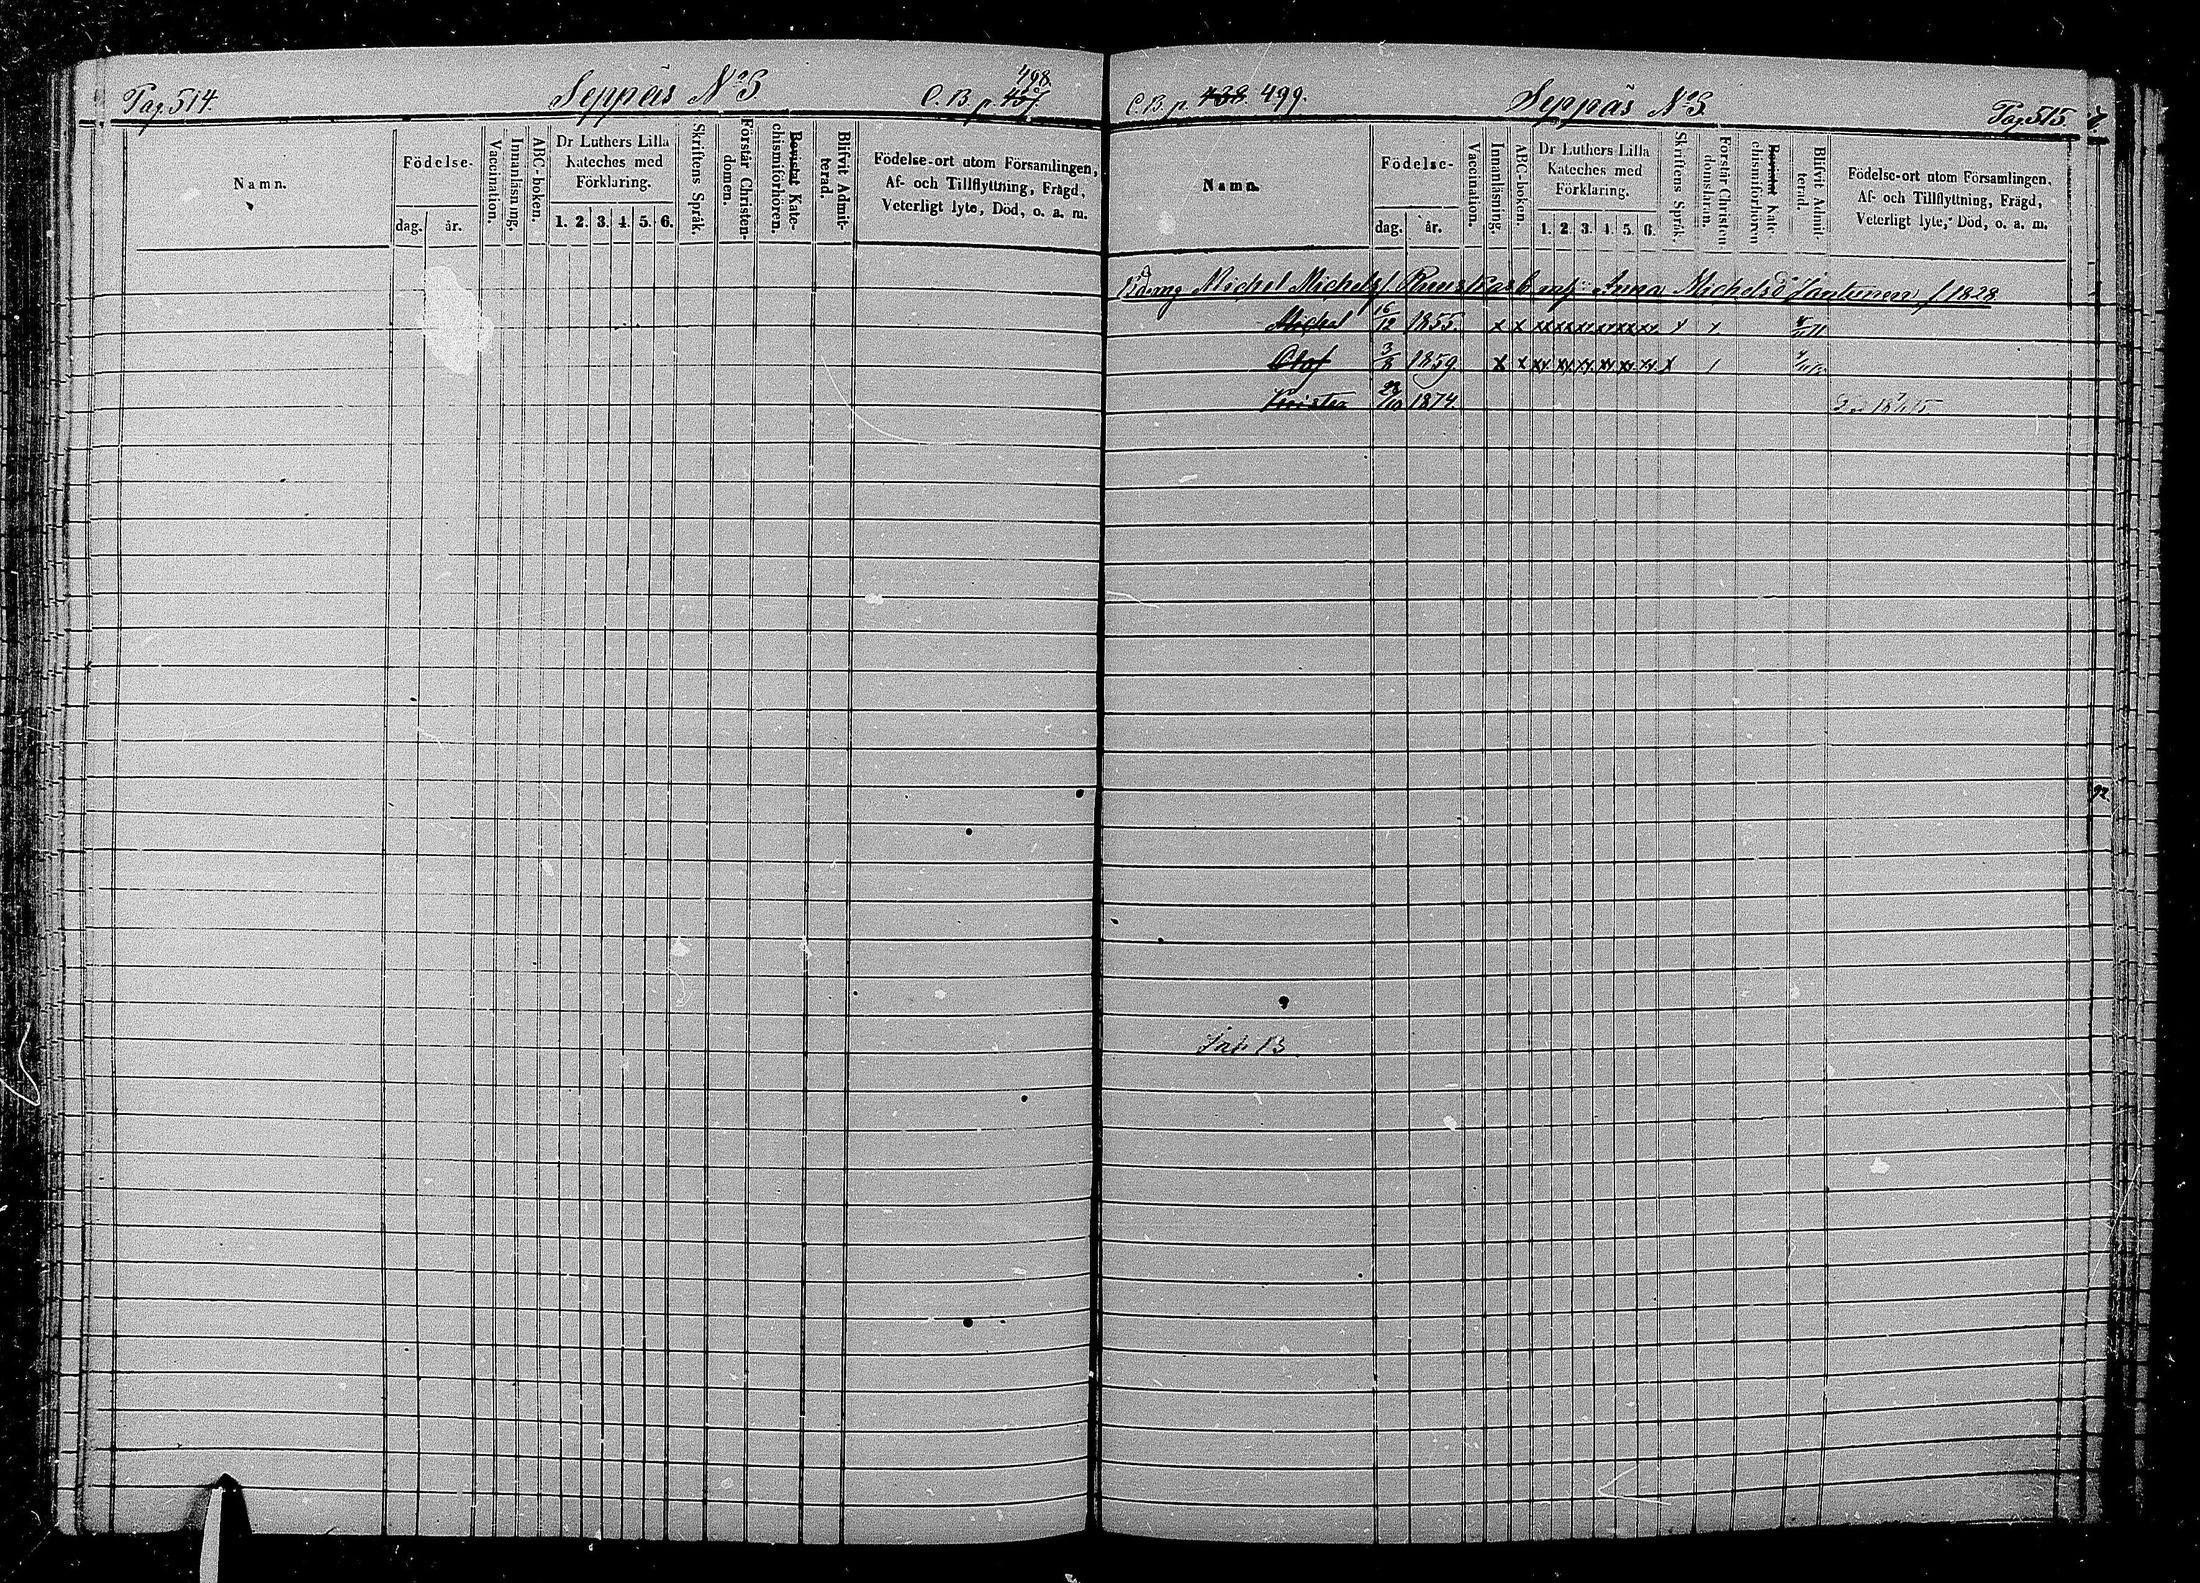 Pag. 514.
Seppäs No 3
C. B. p. 457. 498
Namn.
Födelse-
dag. år.
Vaccination.
Innanläsning.
ABC-boken.
Dr Luthers Lilla
Kateches med
Förklaring.
1. 2. 3. 4. 5. 6.
Skriftens Språk.
Förstår Christen-
domen.
Bevistat Kate-
chismiförhören.
Blifvit Admit-
terad.
Födelse-ort utom Församlingen,
Af- och Tillflyttning, Frägd,
Veterligt lyte, Död, o. a. m.
C. B. p. 438. 499.
Seppäs No 3.
Pag. 515
Namn.
Födelse-
dag. år.
Vaccination.
Innanläsning.
ABC-boken.
Dr Luthers Lilla
Kateches med
Förklaring.
1. 2. 3. 4. 5. 6.
Skriftens Språk.
Förstår Christen
domsläran.
Bevistat Kate
chismiförhören
Blifvit Admit-
terad.
Födelse-ort utom Församlingen,
Af- och Tillflyttning, Frägd,
Veterligt lyte, Död, o. a. m.
Michel Michels. Anna Michelsd. f 1828
Michel 16/12 1855. x x xx xx xx xx xx xx x x
Olof 3/2 1859. x x xx xx xx xx xx xx x
Krister 28/10 1874.
92.